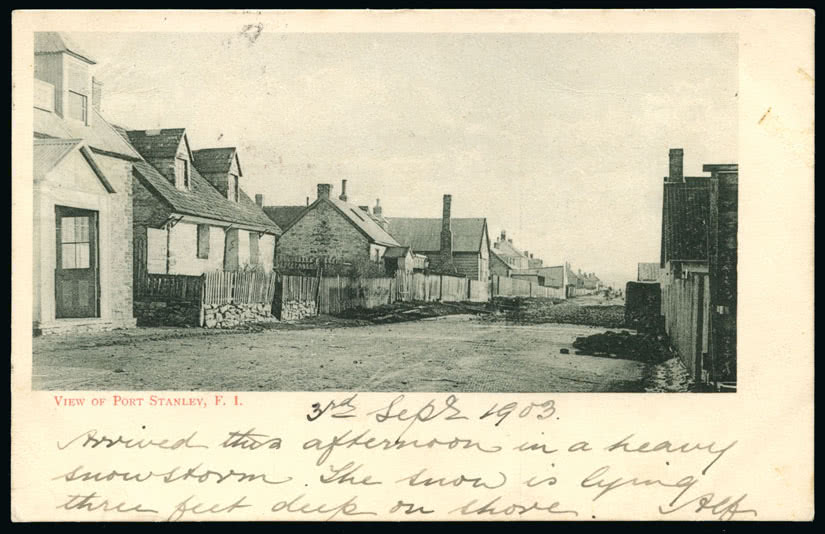 VIEW OF PORT STANLEY, F. I.
3rd Sepr 1903.
Arrived this afternoon in a heavy
snowstorm. The snow is lying
three feet deep on shore. Alf